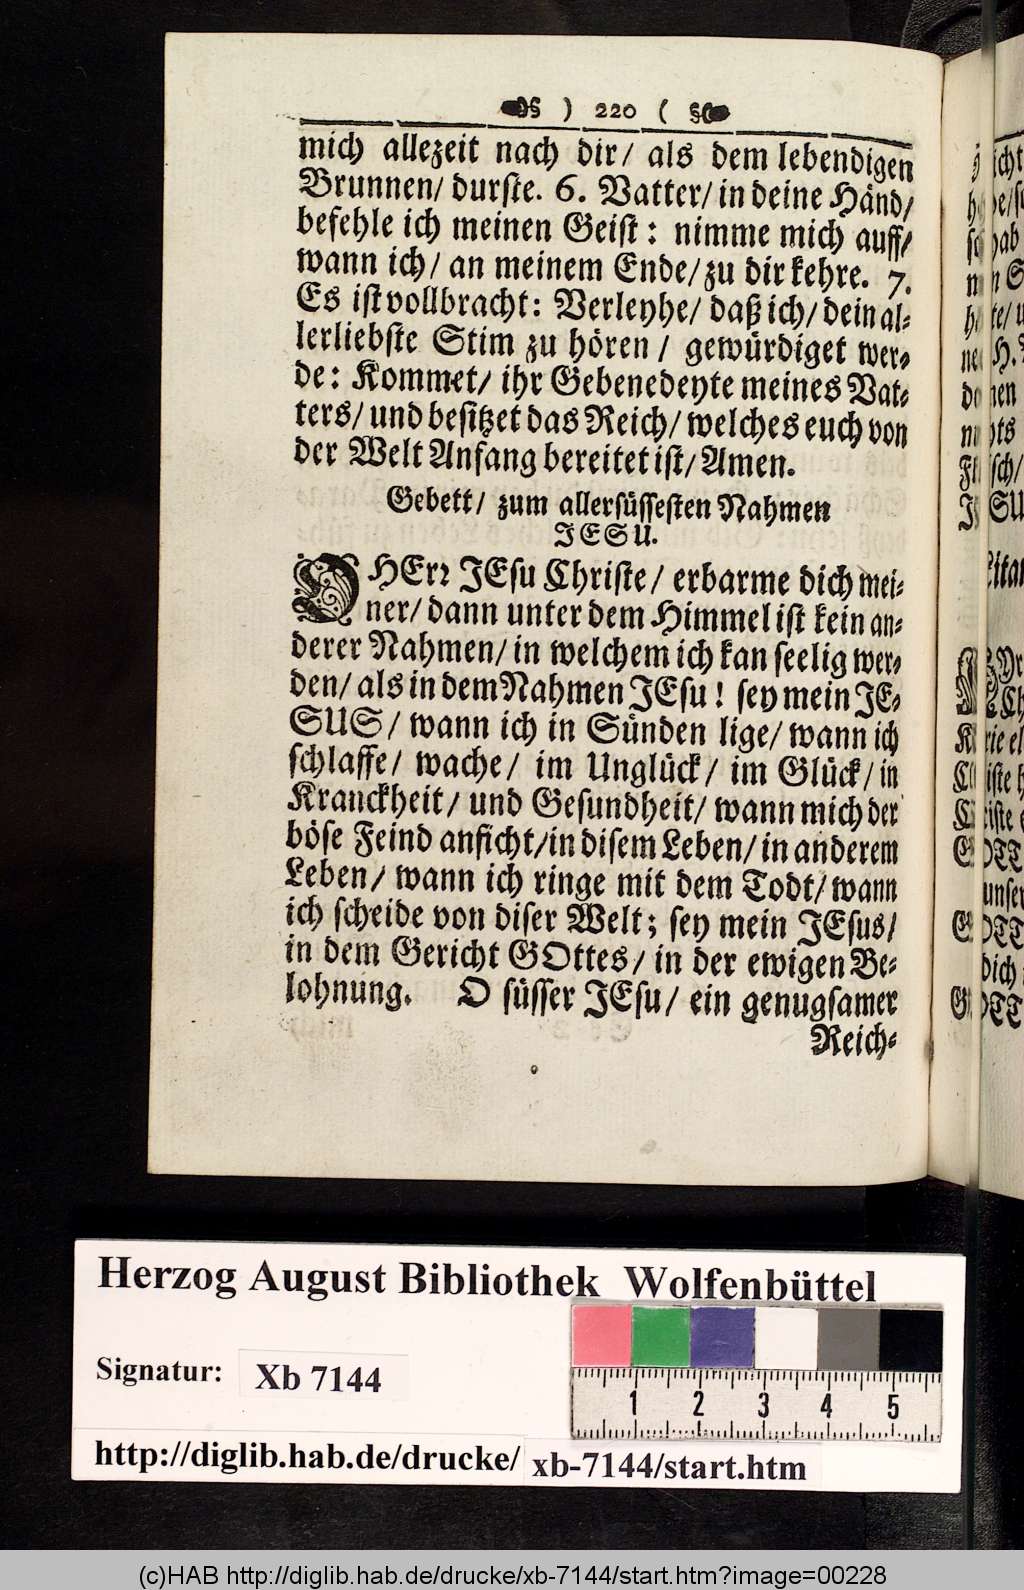 ) 220 (
mich allezeit nach dir/ als dem lebendigen
Brunnen/ durste. 6. Vatter/ in deine Händ/
befehle ich meinen Geist: nimme mich auff/
wann ich/ an meinem Ende/ zu dir kehre. 7.
Es ist vollbracht: Verleyhe/ daß ich/ dein al-
lerliebste Stim zu hören / gewürdiget wer-
de: Kommet/ ihr Gebenedeyte meines Vat-
ters/ und besitzet das Reich/ welches euch von
der Welt Anfang bereitet ist/ Amen.
Gebett/ zum allersüssesten Nahmen
JESU.
O HErr JEsu Christe/ erbarme dich mei-
ner/ dann unter dem Himmel ist kein an-
derer Nahmen/ in welchem ich kan seelig wer-
den/ als in dem Nahmen JEsu! sey mein JE-
SUS/ wann ich in Sünden lige/ wann ich
schlaffe/ wache/ im Unglück/ im Glück/ in
Kranckheit/ und Gesundheit/ wann mich der
böse Feind anficht/ in disem Leben/ in anderem
Leben/ wann ich ringe mit dem Todt/ wann
ich scheide von diser Welt; sey mein JEsus/
in dem Gericht GOttes/ in der ewigen Be-
lohnung. O süsser JEsu/ ein genugsamer
Reich-
Herzog August Bibliothek Wolfenbüttel
Signatur: Xb 7144
1 2 3 4 5
http://diglib.hab.de/drucke/ xb-7144/start.htm
(c)HAB http://diglib.hab.de/drucke/xb-7144/start.htm?image=00228